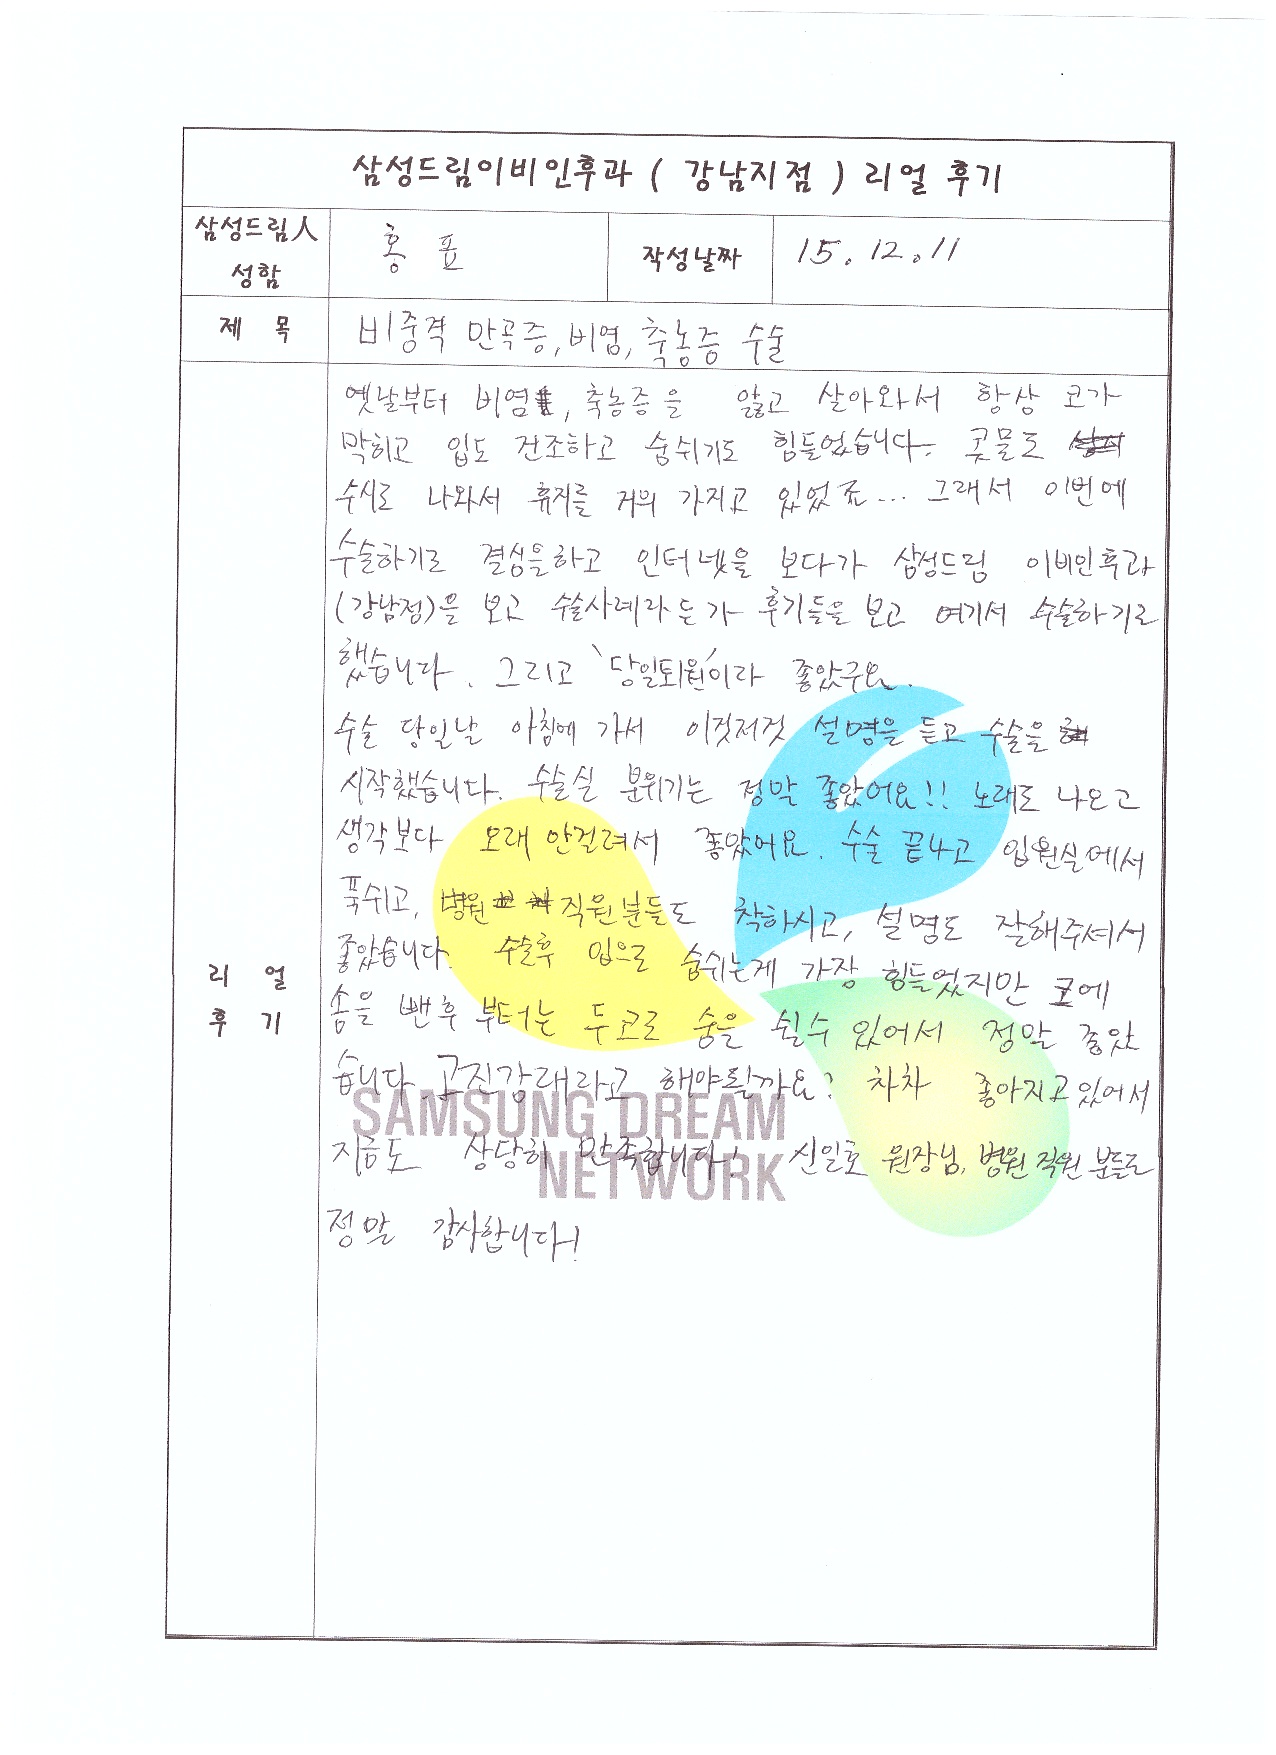 삼성드림이비인후과 ( 강남지점 ) 리얼 후기
삼성드림人 성함 홍 표 작성날짜 15. 12. 11
제 목 비중격 만곡증, 비염, 축농증 수술
리 얼 후 기
옛날부터 비염, 축농증을 앓고 살아와서 항상 코가
막히고 입도 건조하고 숨쉬기도 힘들었습니다. 콧물도
수시로 나와서 휴지를 거의 가지고 있었죠... 그래서 이번에
수술하기로 결심을하고 인터넷을 보다가 삼성드림 이비인후과
(강남점)을 보고 수술사례라든가 후기들을 보고 여기서 수술하기로
했습니다. 그리고 '당일퇴원'이라 좋았구요.
수술 당일날 아침에 가서 이것저것 설명을 듣고 수술을
시작했습니다. 수술실 분위기는 정막 좋았어요!! 노래도 나오고
생각보다 오래 안걸려서 좋았어요. 수술 끝나고 입원실에서
푹쉬고, 병원 직원분들도 착하시고, 설명도 잘해주셔서
좋았습니다. 수술후 입으로 숨쉬는게 가장 힘들었지만 코에
솜을 뺀후 부터는 두코로 숨을 쉴수 있어서 정말 좋았
습니다. 고진감래라고 해야될까요? 차차 좋아지고있어서
지금도 상당히 만족합니다! 신일호 원장님, 병원 직원 분들로
정말 감사합니다!
SAMSUNG DREAM
NETWORK